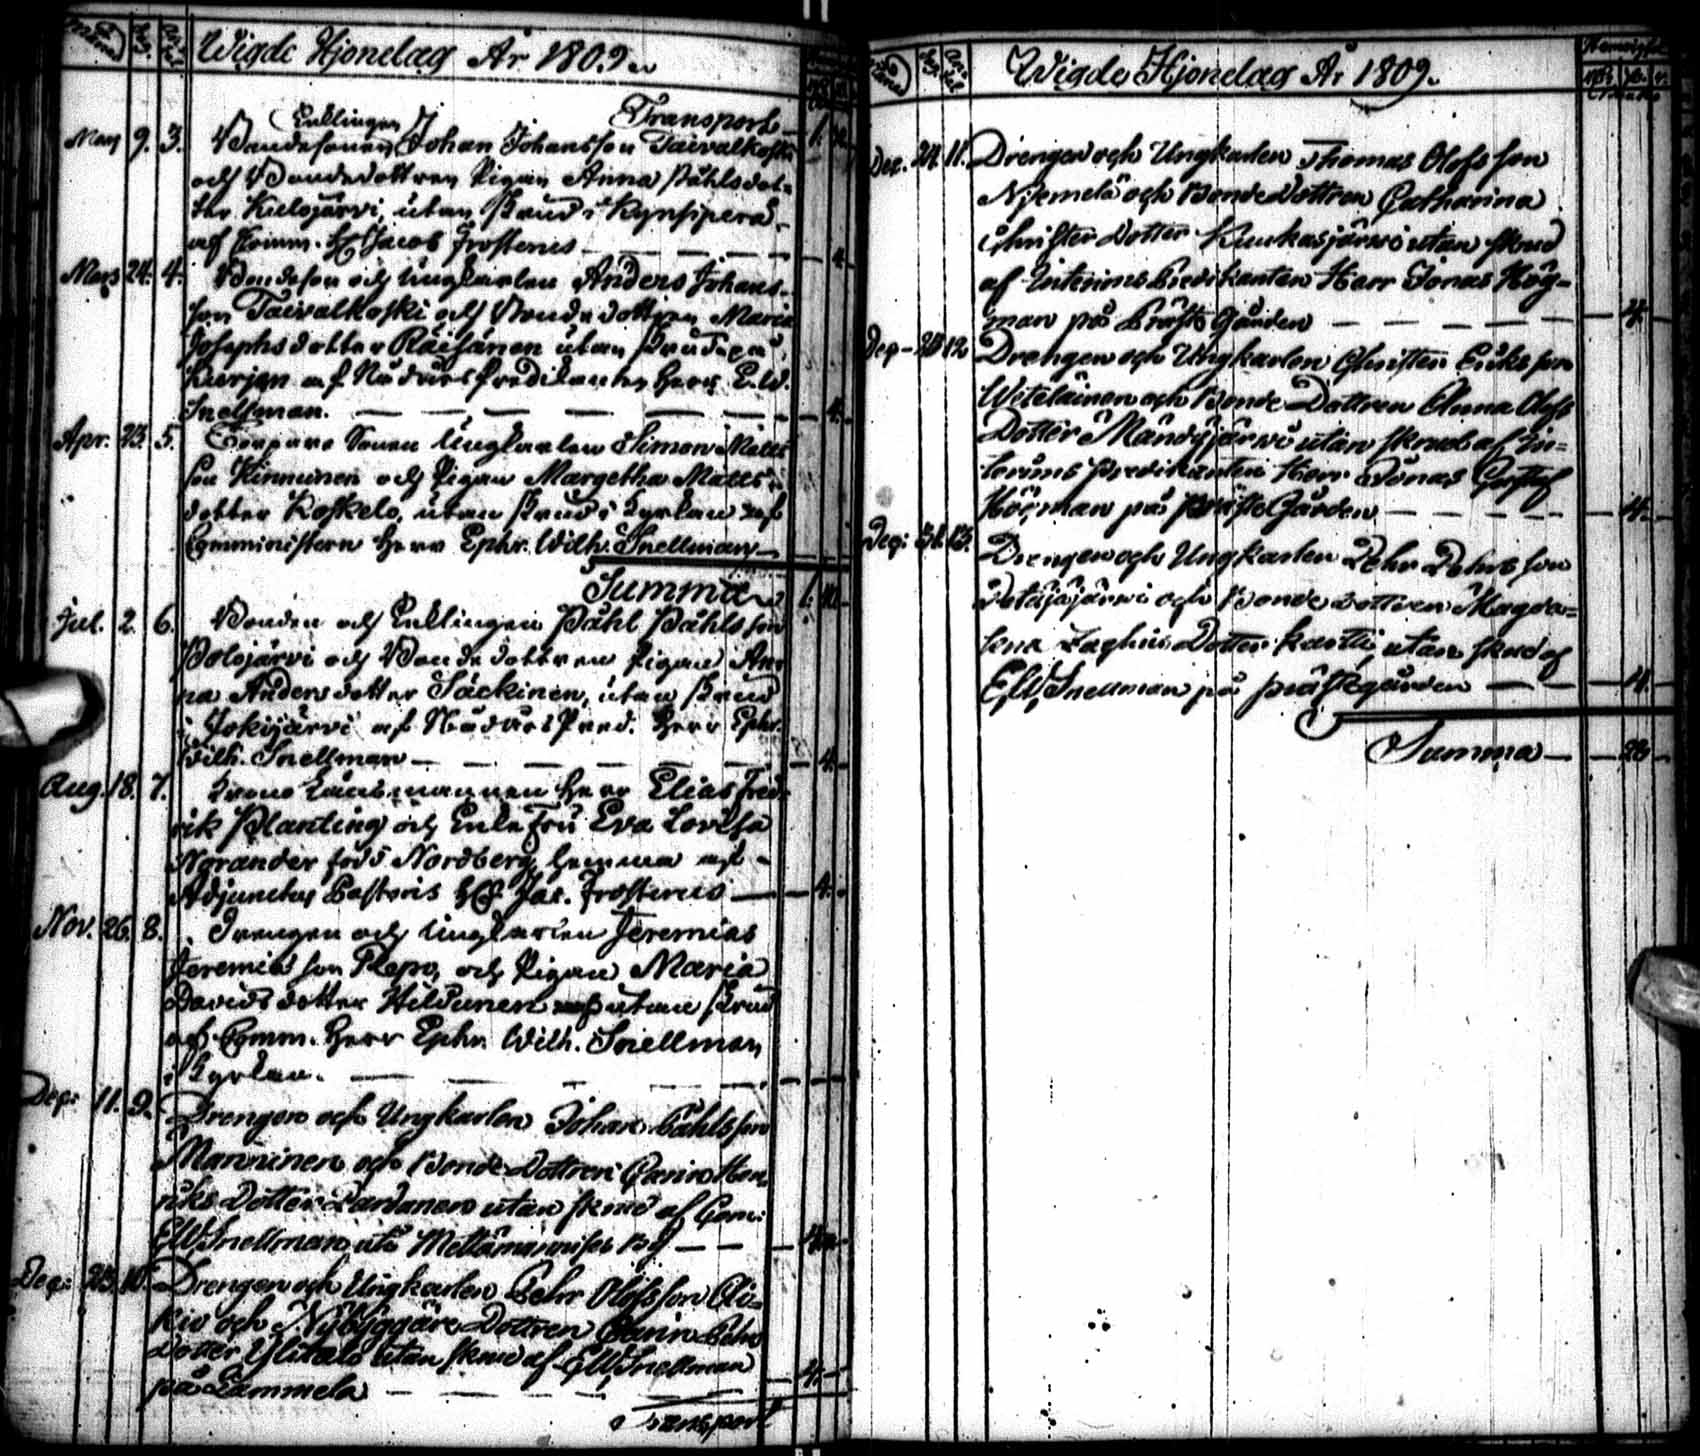 Wigde Hjonelag År 1809.
Transport
Mars 9. 3. Enklingen
Bondesonen Johan Johansson Taivalkoski
och Bondedottren Pigan Anna Påhlsdot-
ter Kulojärvi, utan skrud i Kynsiperä
af Comm. H. Jacob Frosterus — 4.
Mars 24. 4. Bondeson och Ungkarlen Anders Johans-
son Taivalkoski och Bondedottren Maria
Josephsdotter Räisänen utan skrud
af Nådårspredikanten Herr E. W.
Snellman. — 4.
Apr. 23. 5. Sonen Ungkarlen Simon Matts
son Kinnunen och Pigan Margetha Matts
dotter Koskelo, utan skrud i Kyrkan af
Comministern Herr Ephr. Wilh. Snellman
Summa
Jul. 2. 6. Bonden och Enklingen Påhl Påhlsson
Polojärvi och Bondedottren Pigan An
na Andersdotter Säckinen, utan skrud
i Jokijärvi af NådårsPred. Herr Ephr.
Wilh. Snellman — 4.
Aug. 18. 7. Krono Länsmannen Herr Elias Fred
rik Planting och EnkeFru Eva Lovisa
Norander född Nordberg hemma af
Adjunctus Pastoris H. Jac. Frosterus — 4.
Nov. 26. 8. Drengen och Ungkarlen Jeremias
Jeremiasson Repo, och Pigan Maria
Davidsdotter Hildunen utan skrud
af Comm. Herr Ephr. Wilh. Snellman
i Kyrkan. —
Dec: 11. 9. Drengen och Ungkarlen Johan Påhlsson
Manninen och BondeDottren Carin Hen
riks Dotter Pardanen utan skrud af Com:
EW Snellman uti By — 4.
Dec: 23. 10. Drengen och Ungkarlen Pehr Olofsson
och Nybyggare Dottren Carin Pehrs
Dotter Ylitalo utan skrud af EW Snellman
på Lammela — 4.
Transport
Wigde Hjonelag År 1809.
Dec. 24. 11. Drengen och Ungkarlen Thomas Olofsson
Njemelä och BondeDottren Catharina
Christer Dotter Kuukasjärwi utan skrud
af Interims Predikanten Herr Jonas Hög-
man på PrästeGården — 4.
Dec — 12 Drengen och Ungkarlen Christer Erikssson
Wotelainen och Bonde Dottren Anna Olofs
Dotter Mändyjärwi utan skrud af In-
terims Predikanten Herr Jonas Gustaf
Högman på PrästeGården — 4.
Dec: 31. 13. Drengen och Ungkarlen Pehr Pehrsson
Petäjäjärwi och Bonde Dottren Magda-
lena Zachris Dotter Kantti, utan skrud af
EW Snellman på prästegården — 4.
Summa —